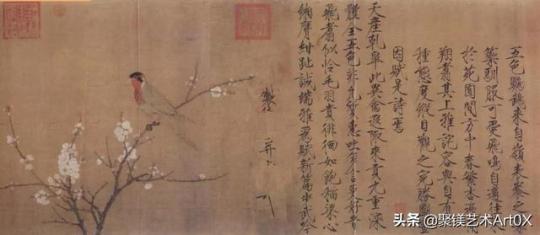 五色鸚鵡來自嶺表養之禁
籞馴服可愛飛鳴自適往來
於苑囿間方中春繁杏遍
翔翥其上雅詫容與自有
種態度縱目觀之宛勝圖
因賦是詩焉
天產乾皋此異禽遐陬來貢九重深
體全五色非凡質惠吐多言更好音
飛翥似憐毛羽貴徘徊如飽稻粱心
緗膺紺趾誠端雅為賦新篇步武吟
製
并
头条 @聚镁艺术Art0X